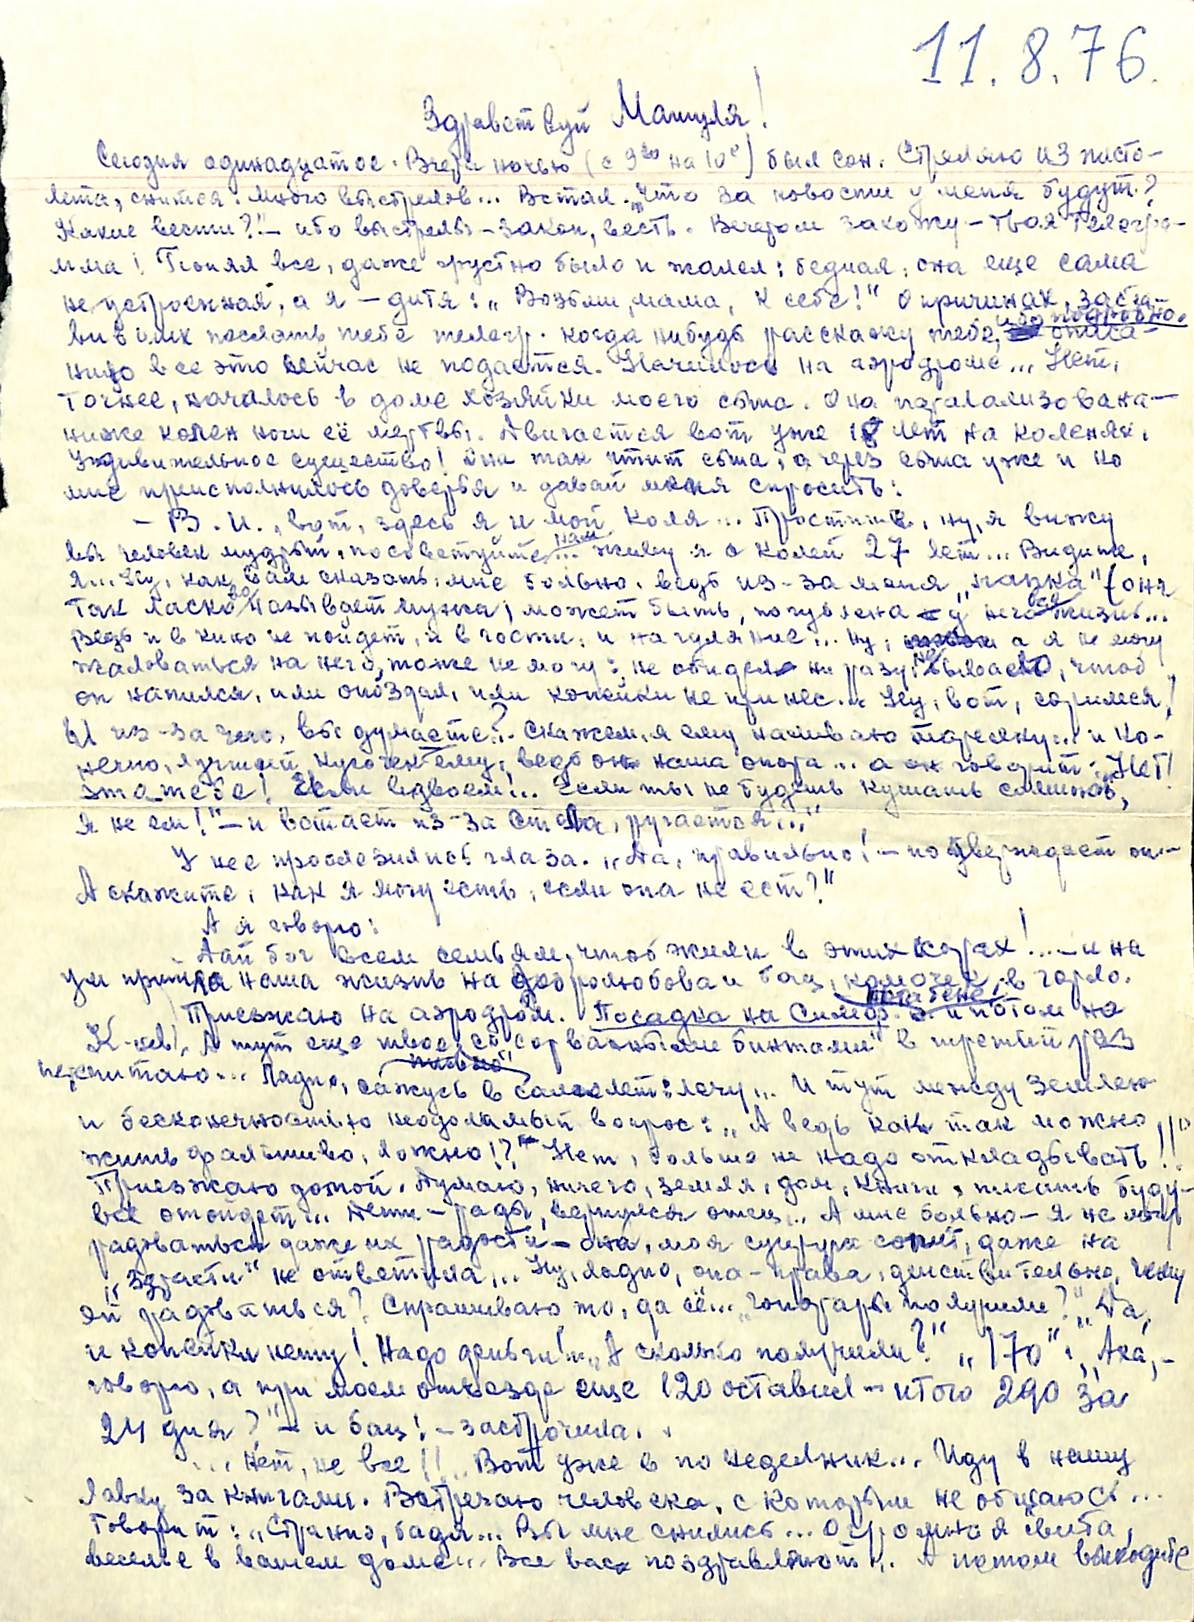 11.8.76.
Здравствуй Мамуля!
Сегодня одинадцатое. Вчера ночью (с 9го на 10е) был сон. Стреляю из писто-
лета, снится: много выстрелов... Встал. „Что за новости у меня будут?
Какие вести?!" – ибо выстрелы – закон, весть. Вечером захожу – твоя телегра-
мма! Понял все, даже грустно было и жалел: бедная, она еще сама
не устроенная, а я – дитя: „Возьми, мама, к себе!" О причинах, заста-
вивших послать тебе телегр. когда нибудь расскажу тебе, ибо подробно описа-
нию все это сейчас не подается. Началось на аэродроме... Нет,
точнее, началось в доме хозяйки моего сына. Она парализована –
ниже колен ноги её мертвы. Двигается вот уже 18 лет на коленях.
Удивительное существо! Она так чтит сына, а через сына уже и ко
мне преисполнилось доверья и давай меня спросить:
– В. И., вот, здесь я и мой Коля... Простите, ну, я вижу
вы человек мудрый, посоветуйте нам... живу я с Колей 27 лет... Видите,
я... Ну, как Вам сказать: мне больно, ведь из-за меня „папка" (она
так ласково называет мужа) может быть, погублена у него вся жизнь...
Ведь и в кино не пойдет, и в гости, и на гуляние... Ну, а я не могу
жаловаться на него, тоже не могу: не обидел ни разу, не бывало, чтоб
он напился, или опоздал, или копейки не принес... Ну, вот, соримся,
И из-за чего, вы думаете?.. Скажем, я ему наливаю тарелку... и ко-
нечно, лучший кусочек ему, ведь он наша опора... а он говорит: „Нет!
это тебе! Если вдвоем... Если ты не будешь кушать
я не ем!" – и встает из-за стола, ругается..."
У нее прослезились глаза. „Да, правильно! – подтверждает он. –
А скажите, как я могу есть, если она не ест?"
А я говорю:
Дай бог всем семьям, чтоб жили в этих ссорах!... – и на
ум пришла наша жизнь на Добролюбова и бац, комочек в горло.
Приезжаю на аэродром. Посадка на Симфер. и потом на
К-нев. А тут еще твое письмо „со сорванными бинтами" в третий раз
перечитаю... Ладно, сажусь в самолет: лечу... И тут между землею
и бесконечностью неодолимый вопрос: „А ведь как так можно
жить фальшиво, ложно!?" Нет, больше не надо откладывать!!"
Приезжаю домой. Думаю, ничего, земля, дом, книги, писать буду –
все отойдет... Дети – рады, вернулся отец... А мне больно – я не могу
радоваться даже их радости – она, моя супруга сопит, даже на
„Здрасти" не ответила... Ну, ладно, она – права, действительно, чему
ей радоваться? Спрашиваю то, да сё... „Гонорары получили?" „Да,
и копейки нету! Надо деньги!" „А сколько получили?" „170", „Ага, –
говорю, а при моем отъезде еще 120 оставил – итого 290 за
24 дня?" – и бац! – застрочила...
... Нет, не все!! .. Вот уже в понеделник... Иду в нашу
лавку за книгами. Встречаю человека, с которым не общаюсь...
Говорит: „Странно, бадя... Вы мне снились... Огромная свита,
веселье в вашем доме... Все вас поздравляют... А потом выходите